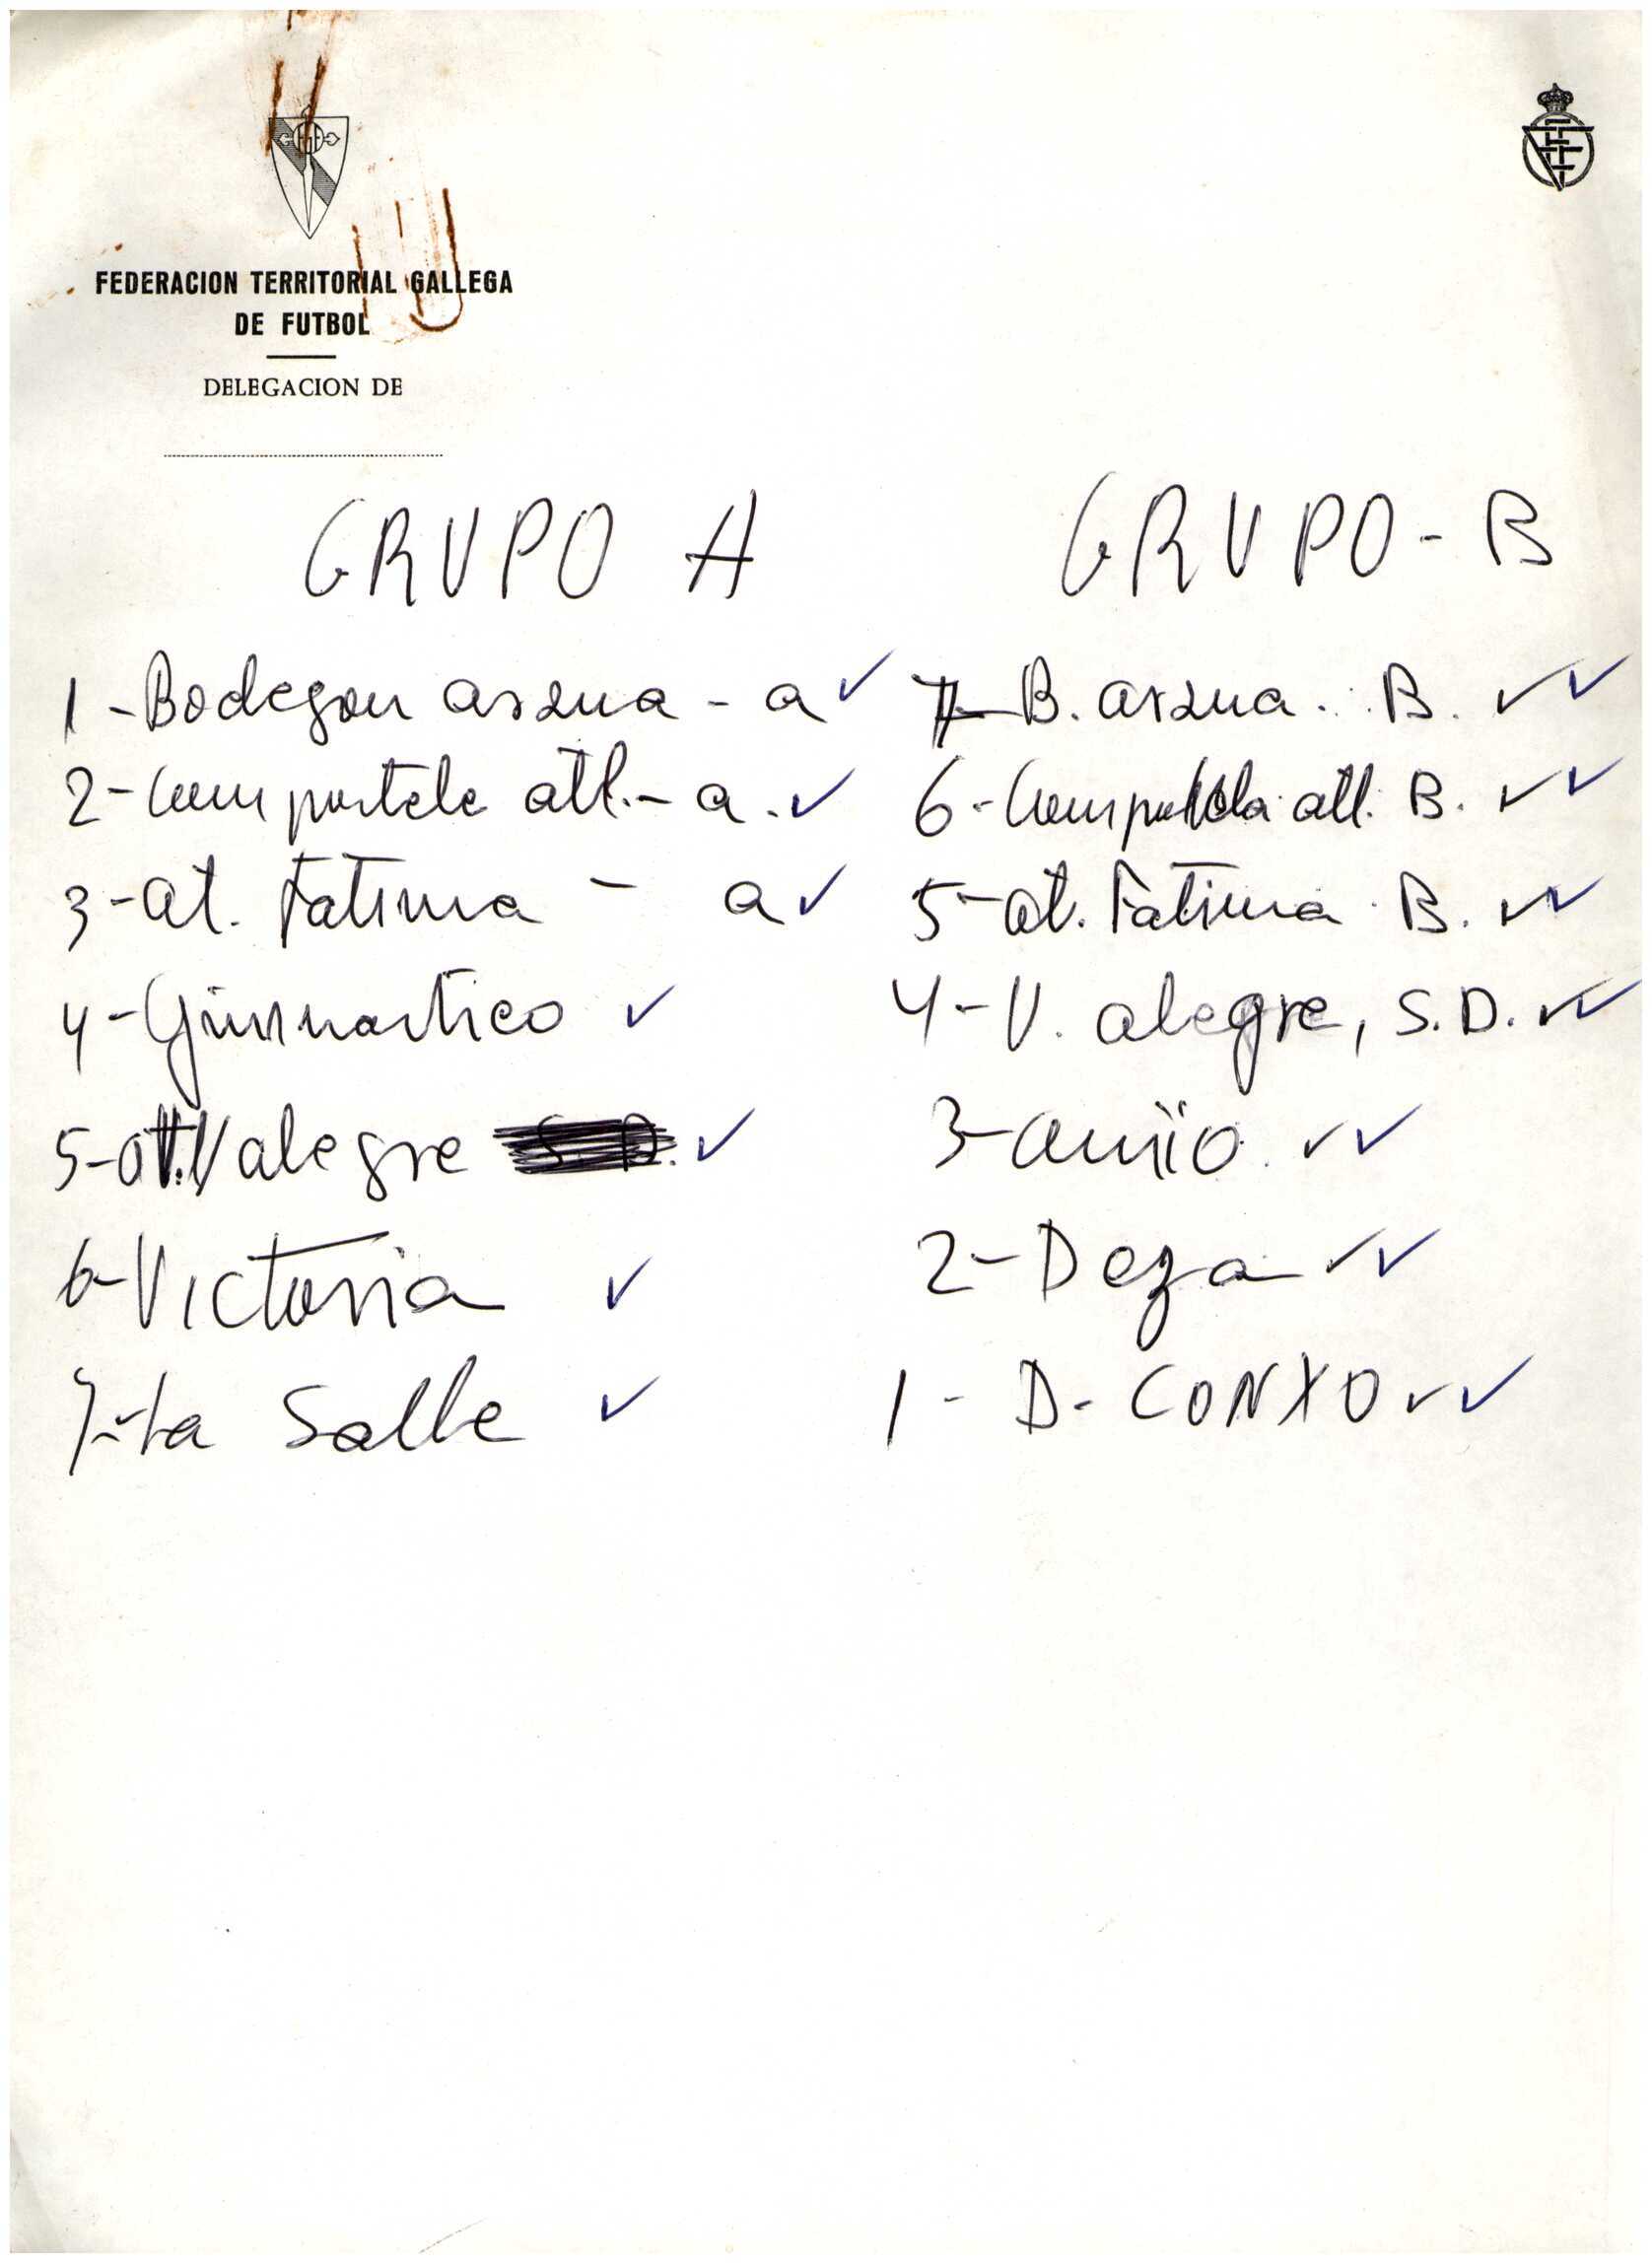 FEDERACION TERRITORIAL GALLEGA
DE FUTBOL
DELEGACION DE
GRUPO A
1-Bodegon arzua - a ✓
2-Compostela atl.- a. ✓
3-at. Fatima - a ✓
4-Gimnastico ✓
5-at. V alegre S.D. ✓
6-Victoria ✓
7-La Salle ✓
GRUPO-B
7-B. arzua. B. ✓✓
6-Compostela atl. B. ✓✓
5-at. Fatima. B. ✓✓
4-V. alegre, S.D. ✓✓
3-amio. ✓✓
2-Deza ✓✓
1-D-CONXO ✓✓